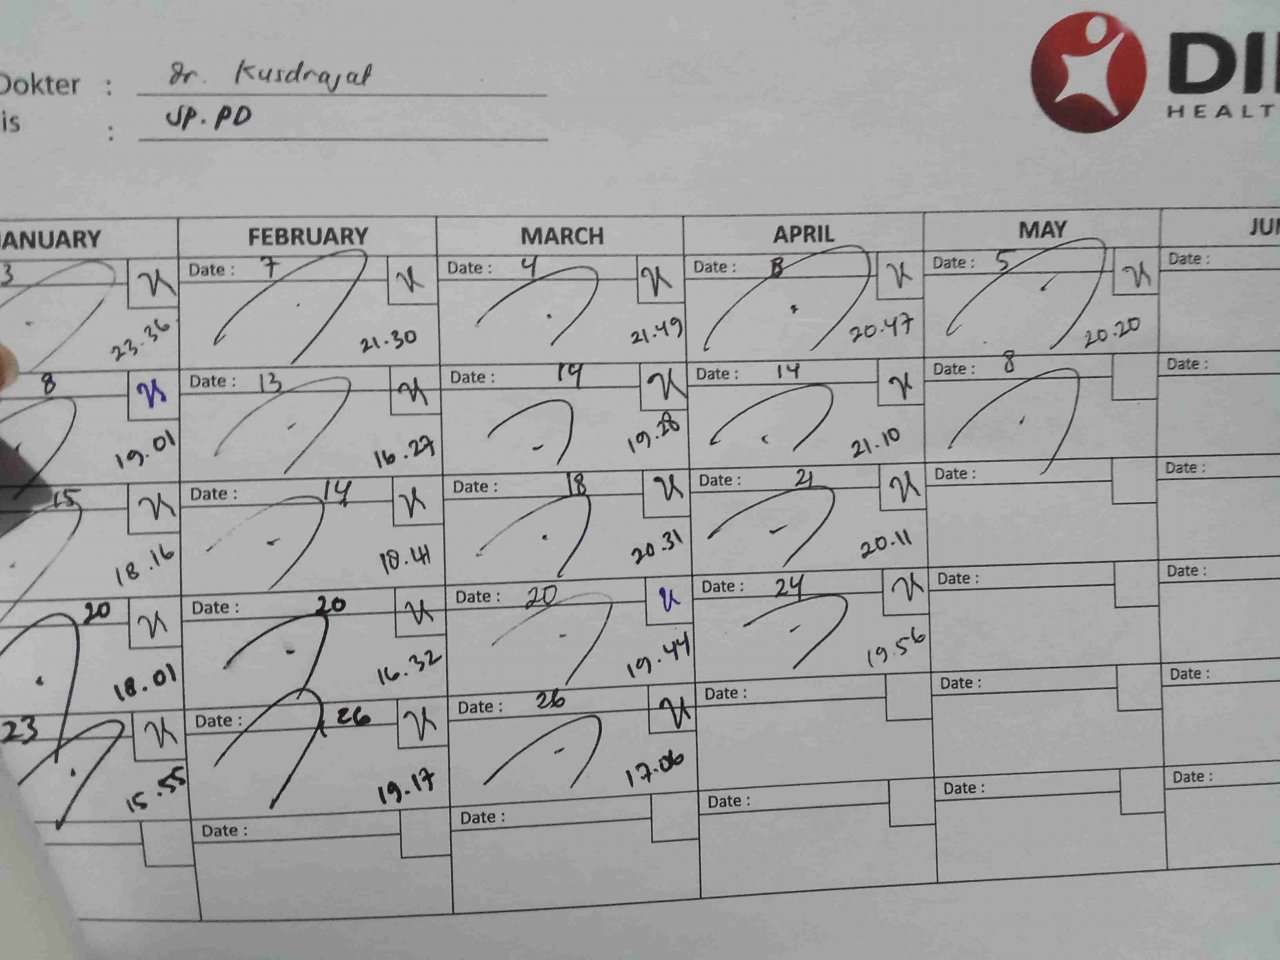 Dokter : dr. Kusdrajat
is : SP.PD
DI
HEALT
ANUARY FEBRUARY MARCH APRIL MAY JU
3 Date : 7 Date : 4 Date : 8 Date : 5 Date :
23.36 21.30 21.49 20.47 20.20
8 Date : 13 Date : 14 Date : 14 Date : 8 Date :
19.01 16.27 19.28 21.10
15 Date : 14 Date : 18 Date : 21 Date : Date :
18.16 18.41 20.31 20.11
20 Date : 20 Date : 20 Date : 24 Date : Date :
18.01 16.32 19.44 19.56
23 Date : 26 Date : 26 Date : Date : Date :
15.55 19.17 17.06
Date : Date : Date : Date : Date :